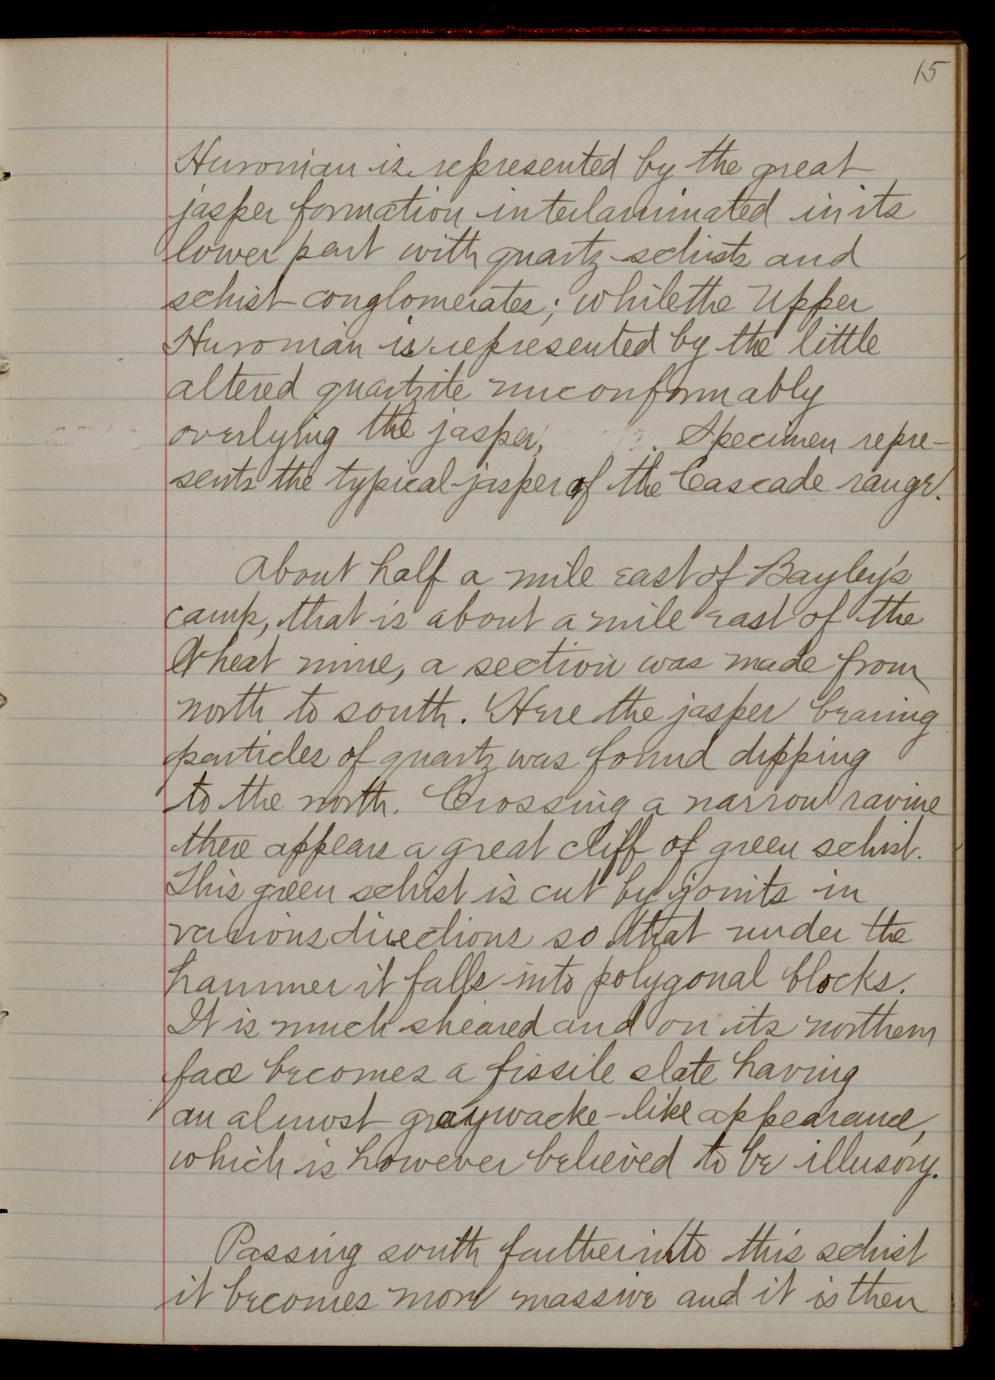 15
Huronian is represented by the great
jasper formation interlaminated in its
lower part with quartz-schists and
schist-conglomerates; while the Upper
Huronian is represented by the little
altered quartzite unconformably
overlying the jasper. Specimen repre-
sents the typical jasper of the Cascade range.
About half a mile east of Bayley's
camp, that is about a mile east of the
Wheat mine, a section was made from
north to south. Here the jasper bearing
particles of quartz was found dipping
to the north. Crossing a narrow ravine
there appears a great cliff of green schist.
This green schist is cut by joints in
various directions so that under the
hammer it falls into polygonal blocks.
It is much sheared and on its northern
face becomes a fissile slate having
an almost graywacke-like appearance,
which is however believed to be illusory.
Passing south farther into this schist
it becomes more massive and it is then